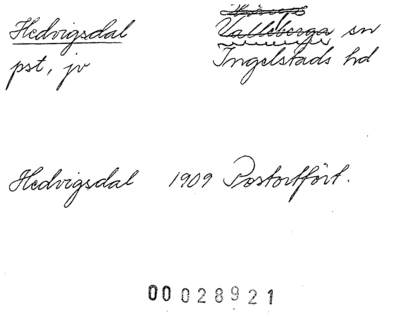 Hedvigsdal
pst, jv
Valleberga sn
Ingelstads hd
Hedvigsdal 1909 Postortfört.
00 028921